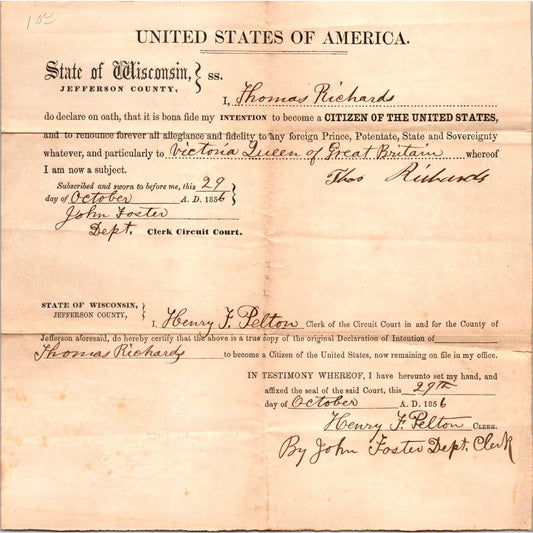 UNITED STATES OF AMERICA.
State of Wisconsin, } ss.
JEFFERSON COUNTY,
I, Thomas Richards
do declare on oath, that it is bona fide my INTENTION to become a CITIZEN OF THE UNITED STATES,
and to renounce forever all allegiance and fidelity to any foreign Prince, Potentate, State and Sovereignty
whatever, and particularly to Victoria Queen of Great Britain whereof
I am now a subject. Thos Richards
Subscribed and sworn to before me, this 29
day of October A. D. 1856
John Foster
Dept. Clerk Circuit Court.
STATE OF WISCONSIN, }
JEFFERSON COUNTY,
I, Henry F. Pelton Clerk of the Circuit Court in and for the County of
Jefferson aforesaid, do hereby certify that the above is a true copy of the original Declaration of Intention of
Thomas Richards to become a Citizen of the United States, now remaining on file in my office.
IN TESTIMONY WHEREOF, I have hereunto set my hand, and
affixed the seal of the said Court, this 29th
day of October A. D. 1856
Henry F. Pelton CLERK.
By John Foster Dept. Clerk